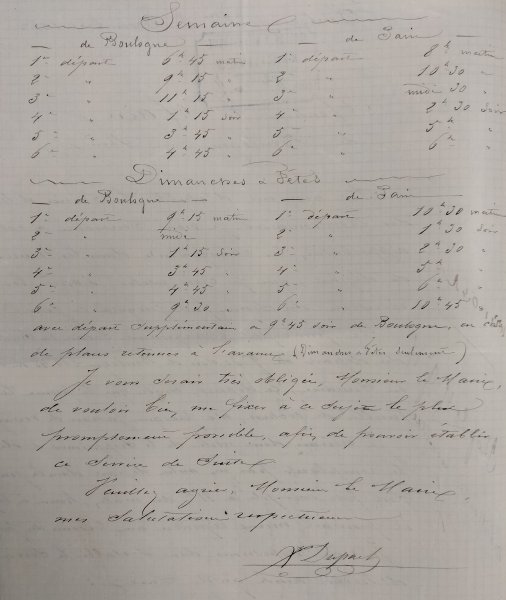 Semaine
de Boulogne — de Pair
1er départ 6h 45 matin 1er départ 8h matin
2e " 9h 15 " 2e " 10h 30 "
3e " 11h 15 " 3e " midi 30
4e " 1h 15 soir 4e " 2h 30 soir
5e " 3h 45 " 5e " 5h "
6e " 4h 45 " 6e " 6h "
Dimanches & Fêtes
de Boulogne — de Pair
1er départ 9h 15 matin 1er départ 10h 30 matin
2e " midi 2e " 1h 30 soir
3e " 1h 15 soir 3e " 2h 30 "
4e " 3h 45 " 4e " 5h "
5e " 4h 45 " 5e " 6h "
6e " 9h 30 " 6e " 10h 45 "
avec départ supplémentaire à 9h 45 soir de Boulogne, en
de places retenues à l'avance (Dimanches & Fêtes seulement)
Je vous serais très obligé, Monsieur le Maire,
de vouloir bien me fixer à ce sujet le plus
promptement possible, afin de pouvoir établir
ce service de suite.
Veuillez agréer, Monsieur le Maire,
mes salutations respectueuses